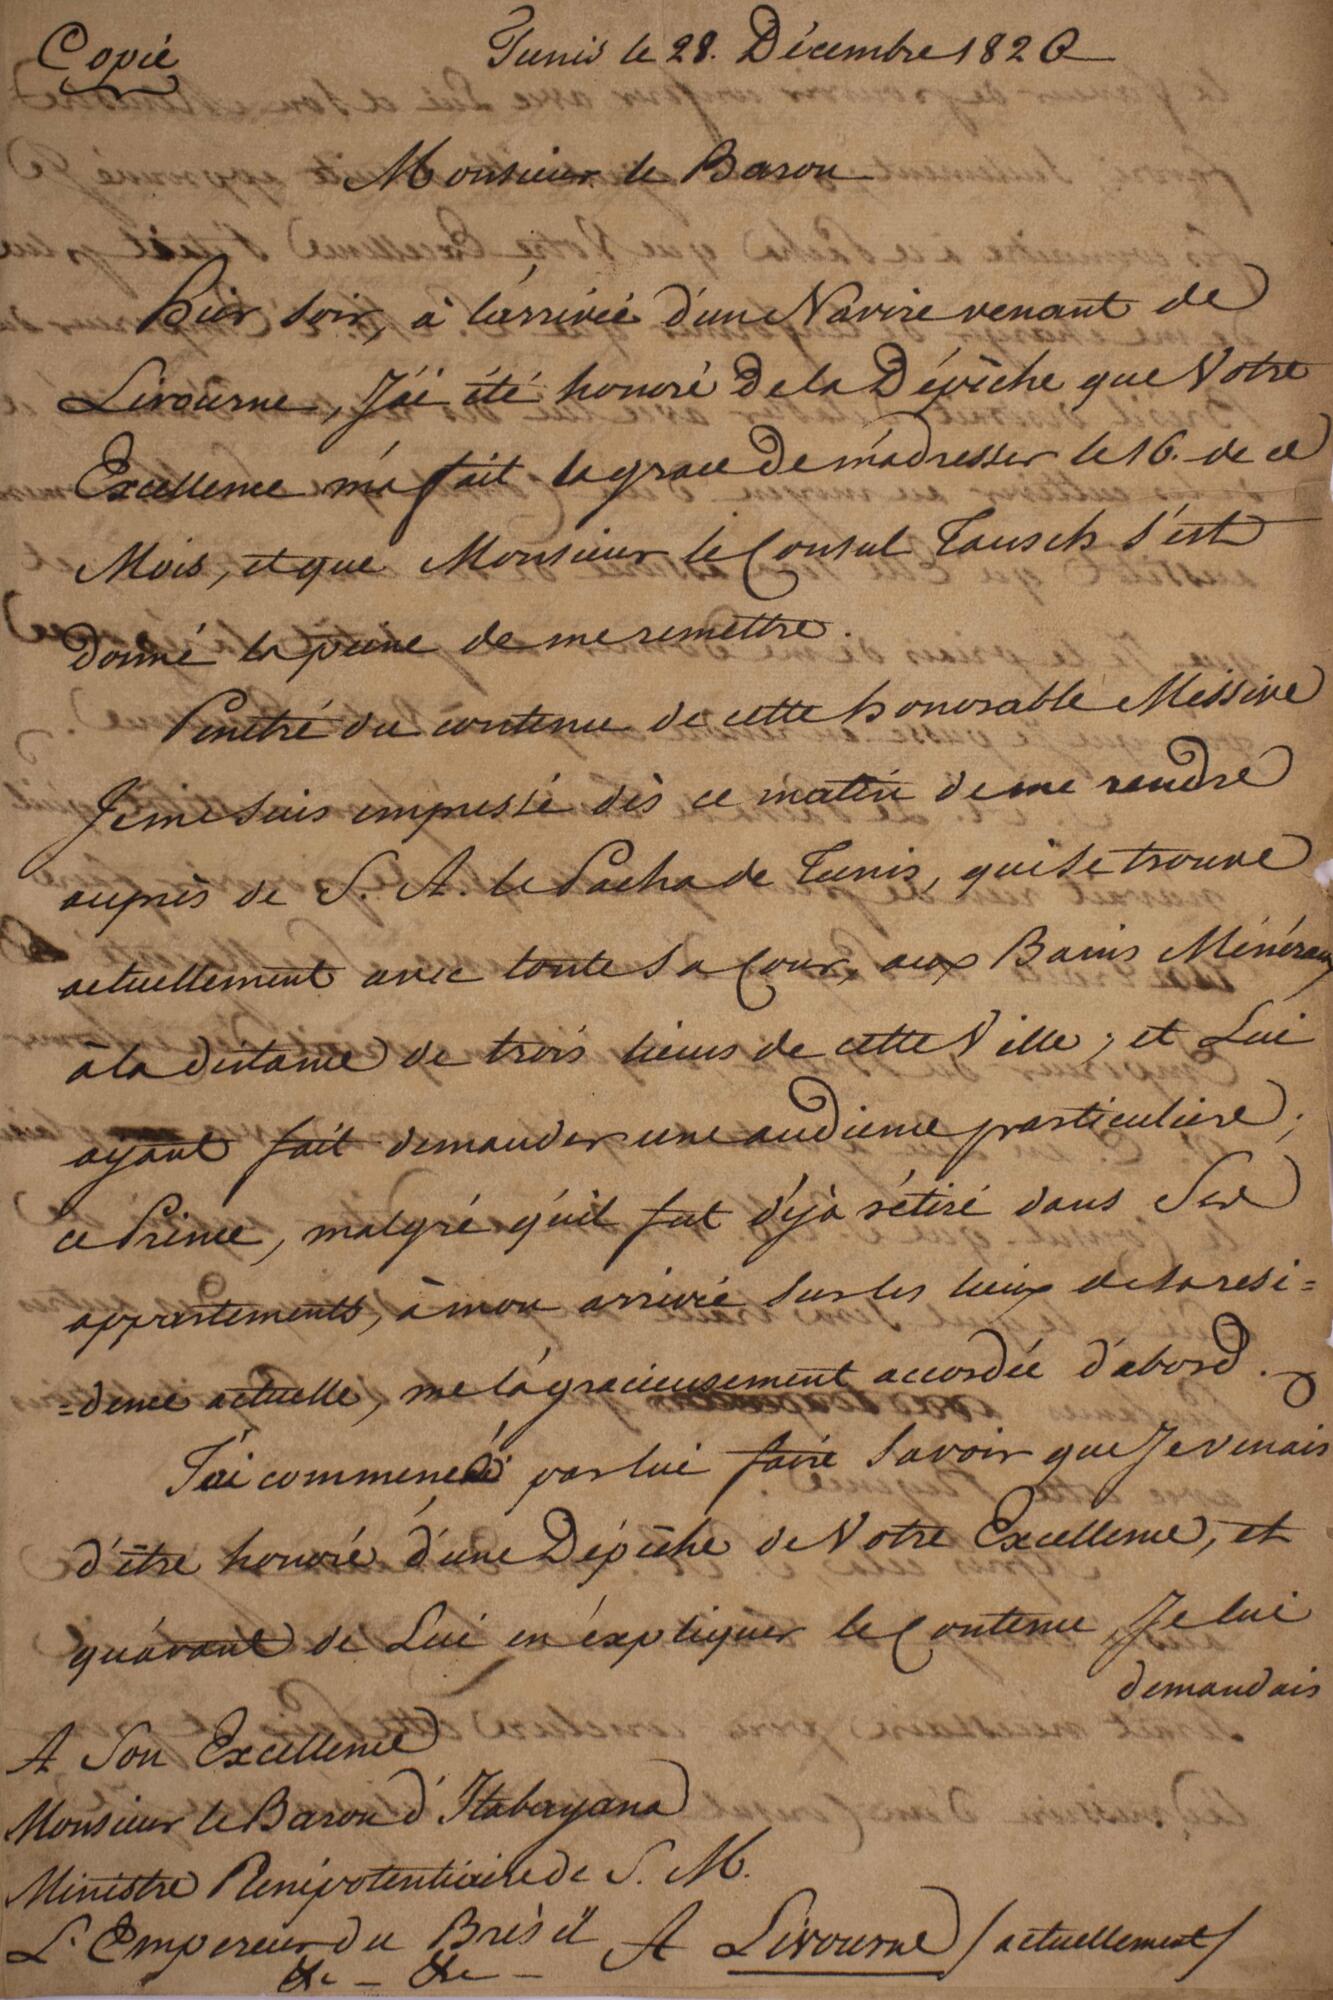 Copié
Tunis le 28. Décembre 1826
Monsieur le Baron
Hier soir, à l'arrivée d'un Navire venant de
Livourne, J'ai été honoré de la Dépêche que Votre
Excellence m'a fait la grace de m'adresser le 16. de ce
Mois, et que Monsieur le Consul Tausch s'est
donné la peine de me remettre.
Penetré du contenu de cette honorable Missive
Je me suis empressé dès ce matin de me rendre
auprès de S. A. le Pacha de Tunis, qui se trouve
actuellement avec toute sa Cour, aux Bains Minéraux
à la distance de trois lieues de cette Ville; et Lui
ayant fait demander une audience particuliere;
ce Prince, malgré qu'il fut déjà rétiré dans Ses
appartements, à mon arrivée sur les lieux de sa resi=
=dence actuelle, me l'a gracieusement accordée d'abord.
J'ai commencé par lui faire savoir que Je venais
d'être honoré d'une Dépêche de Votre Excellence, et
qu'avant de Lui en éxpliquer le Contenu, Je lui
demandais
A Son Excellence
Monsieur le Baron d'Itabayana
Ministre Plenipotentiaire de S. M.
L'Empereur du Brèsil A Livourne / actuellement /
&c - &c -